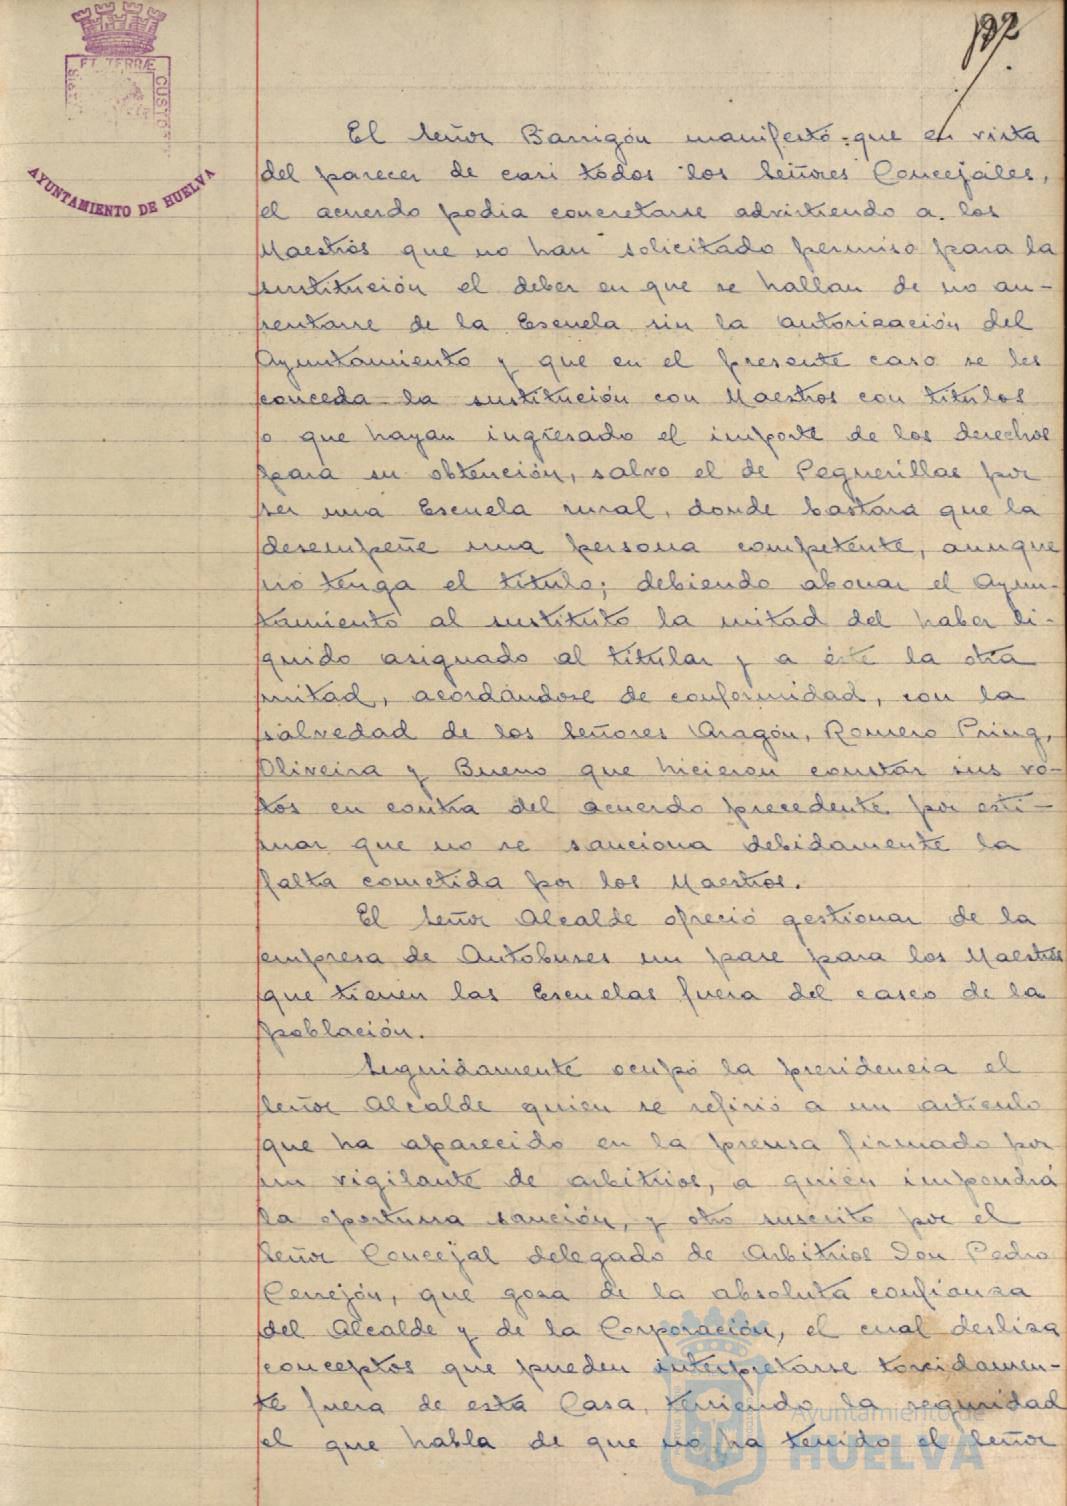 ET TERRÆ
CUSTO
AYUNTAMIENTO DE HUELVA
El Señor Barrigón manifestó que en vista
del parecer de casi todos los Señores Concejales,
el acuerdo podia concretarse advirtiendo a los
Maestros que no han solicitado permiso para la
sustitución el deber en que se hallan de no au-
sentarse de la Escuela sin la autorización del
Ayuntamiento y que en el presente caso se les
conceda la sustitución con Maestros con titulos
o que hayan ingresado el importe de los derechos
para su obtención, salvo el de Peguerillas por
ser una Escuela rural, donde bastara que la
desempeñe una persona competente, aunque
no tenga el titulo; debiendo abonar el Ayun-
tamiento al sustituto la mitad del haber li-
quido asignado al titular y a éste la otra
mitad, acordándose de conformidad, con la
salvedad de los Señores Aragón, Romero Pring,
Oliveira y Bueno que hicieron constar sus vo-
tos en contra del acuerdo precedente por esti-
mar que no se sanciona debidamente la
falta cometida por los Maestros.
El Señor Alcalde ofreció gestionar de la
empresa de Autobuses un pase para los Maestros
que tienen las Escuelas fuera del casco de la
población.
Seguidamente ocupó la presidencia el
Señor Alcalde quien se refirió a un articulo
que ha aparecido en la prensa firmado por
un vigilante de arbitrios, a quien impondrá
la oportuna sanción, y otro suscrito por el
Señor Concejal delegado de Arbitrios Don Pedro
Cerrejón, que goza de la absoluta confianza
del Alcalde y de la Corporación, el cual desliza
conceptos que pueden interpretarse torcidamen-
te fuera de esta Casa, teniendo la seguridad
el que habla de que no ha tenido el Señor
Ayuntamiento de
HUELVA